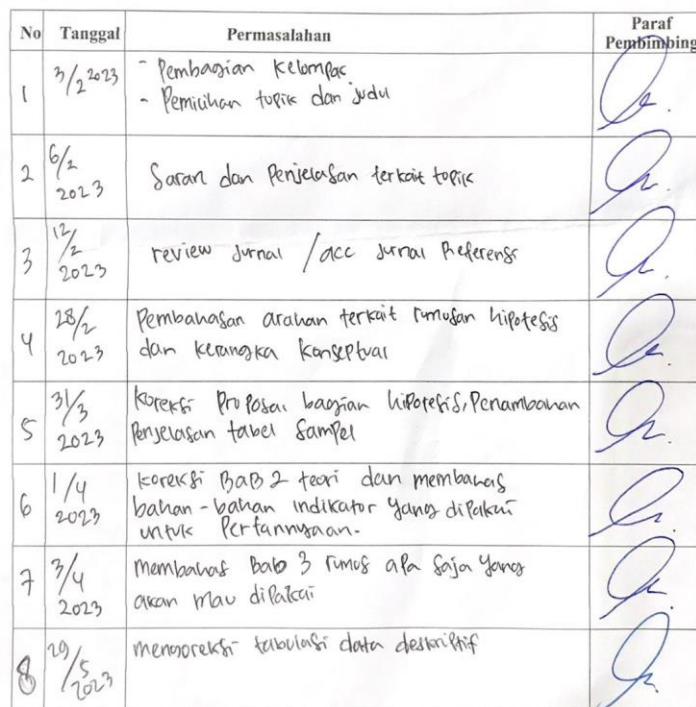 No Tanggal Permasalahan Paraf Pembimbing
1 3/2 2023 - Pembagian Kelompok
- Pemilihan topik dan judul
2 6/2 2023 Saran dan Penjelasan terkait topik
3 12/2 2023 review Jurnal / acc Jurnal Referensi
4 28/2 2023 Pembahasan arahan terkait rumusan hipotesis
dan kerangka konseptual
5 31/3 2023 koreksi Proposal bagian hipotesis, Penambahan
Penjelasan tabel Sampel
6 1/4 2023 koreksi BaB 2 teori dan membahas
bahan-bahan indikator yang dipakai
untuk Pertannyaan.
7 3/4 2023 membahas Bab 3 rumus apa saja yang
akan mau dipakai
8 29/5 2023 mengoreksi tabulasi data deskriptif